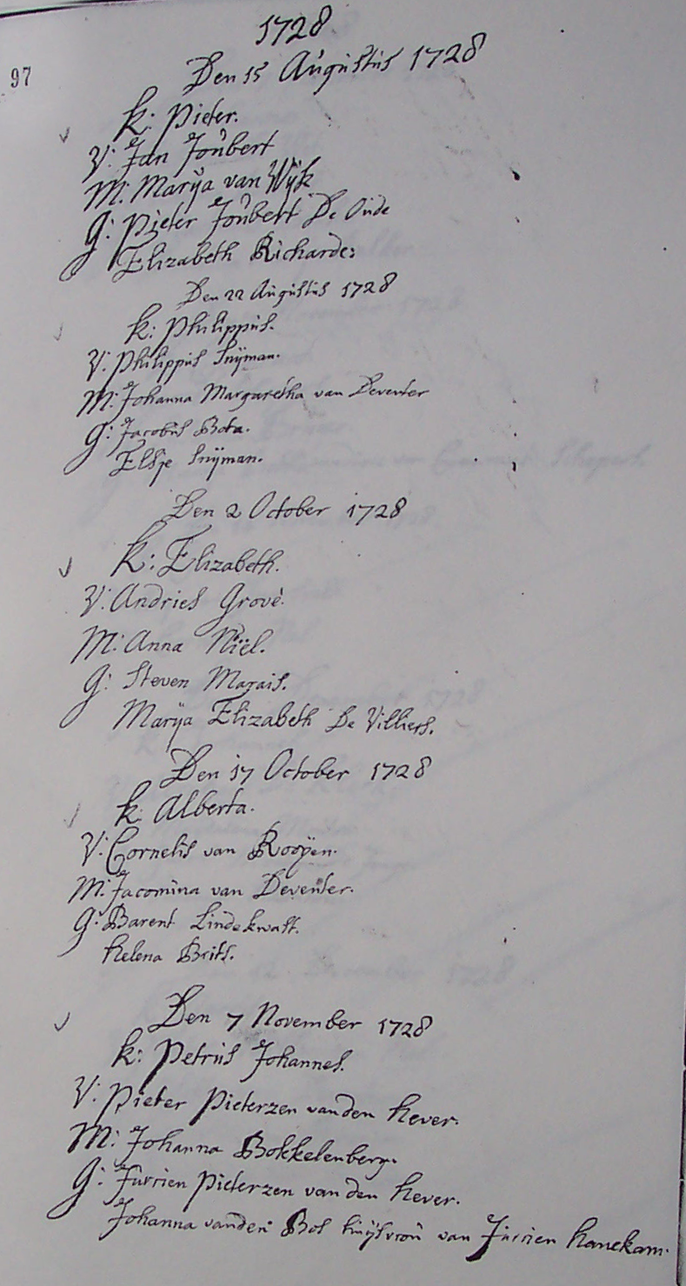 1728
97
Den 15 Augustus 1728
K: Pieter.
V: Jan Joubert
M: Marÿa van Wÿk
G: Pieter Joubert De Oude
Elizabeth Richarde:
Den 22 Augustus 1728
K: Philippus.
V: Philippus Snÿman.
M: Johanna Margaretha van Deventer
G: Jacobus Bota.
Elsje Snÿman.
Den 2 October 1728
K: Elizabeth.
V: Andries Grové.
M: Anna Niël.
G: Steven Marais.
Marÿa Elizabeth De Villiers.
Den 17 October 1728
K: Alberta.
V: Cornelis van Rooÿen.
M: Jacomina van Deventer.
G: Barent Lindekwast.
Helena Brits.
Den 7 November 1728
K: Petrus Johannes.
V: Pieter Pieterzen vanden Hever.
M: Johanna Bokkelenberg.
G: Jurrien Pieterzen van den Hever.
Johanna vanden Bos huÿsvrou van Jurrien Hanekam.